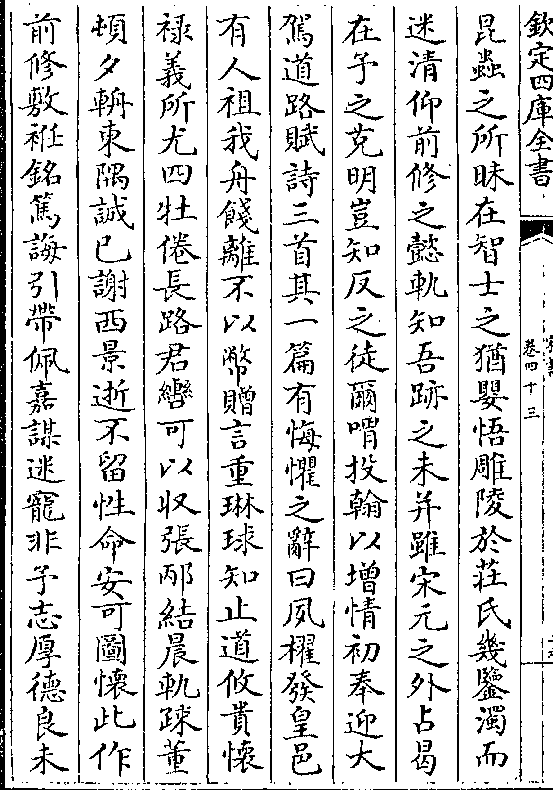 欽定四庫全書
卷四十三
昆蟲之所昧在智士之猶嬰悟雕陵於莊氏幾鑒濁而
迷清仰前修之懿軌知吾跡之未并雖宋元之外占曷
在予之克明豈知反之徒爾喟投翰以增情初奉迎大
駕道路賦詩三首其一篇有悔懼之辭曰夙櫂發皇邑
有人祖我舟餞離不以幣贈言重琳球知止道攸貴懷
禄義所尤四牡倦長路君轡可以収張邴結晨軌疎董
頓夕輈東隅誠已謝西景逝不留性命安可圖懷此作
前修敷袵銘篤誨引帶佩嘉謀迷寵非予志厚德良未